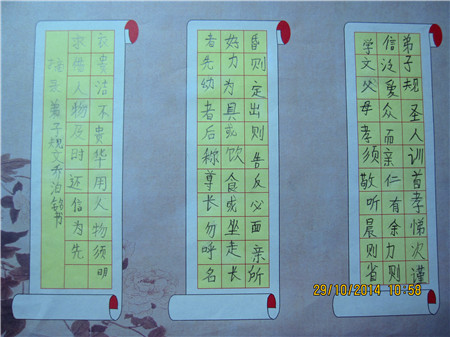 弟子规圣人训首孝悌次谨
信泛爱众而亲仁有余力则
学文父母孝须敬听晨则省
昏则定出则告反必面亲所
好力为具或饮食或坐走长
者先幼者后称尊长勿呼名
衣贵洁不贵华用人物须明
求借人物及时还信为先
录子规文书
29/10/2014 10:58